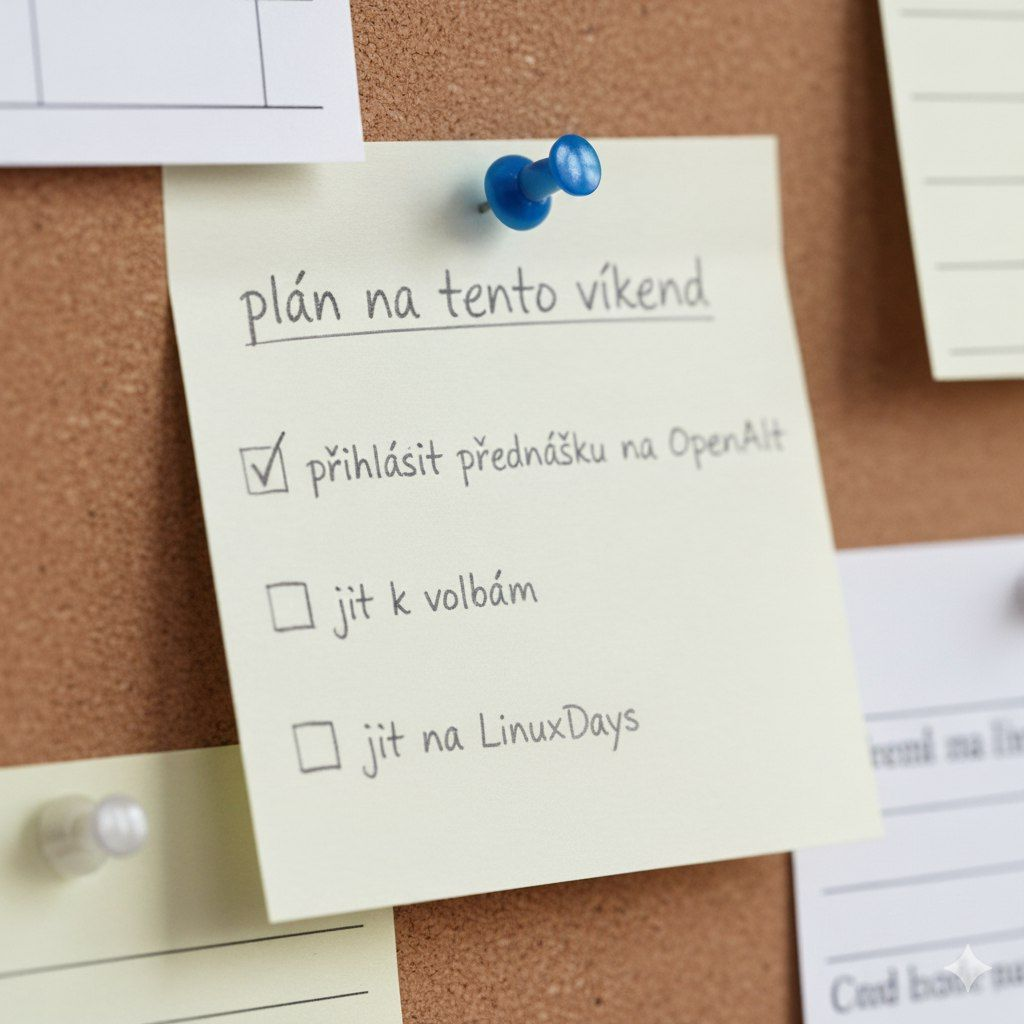 plán na tento víkend
přihlásit přednášku na OpenAlt
jit k volbám
jit na LinuxDays